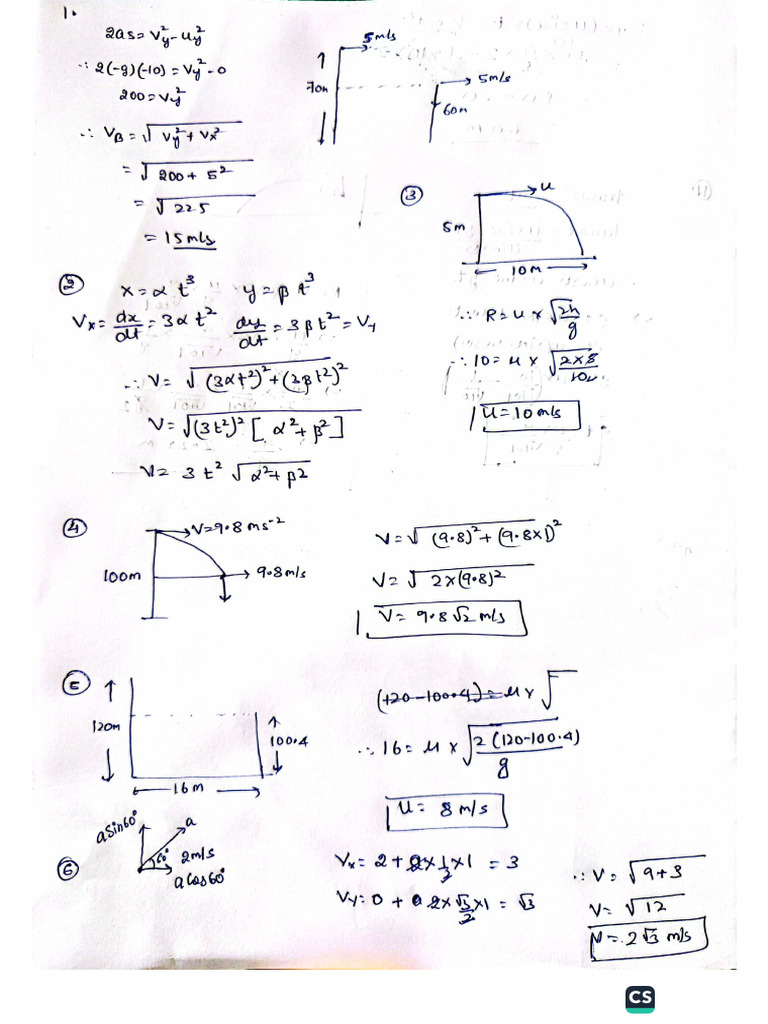 1.
2as = Vy² - uy²
∴ 2(-g)(-10) = Vy² - 0
200 = Vy²
∴ VB = √(Vy² + Vx²)
= √(200 + 5²)
= √225
= 15 m/s
5 m/s
70m
5 m/s
60m
③
u
5m
10m
∴ R = u × √(2h/g)
∴ 10 = u × √(2×5/10)
u = 10 m/s
②
x = α t³ y = β t³
Vx = dx/dt = 3αt² dy/dt = 3βt² = Vy
∴ V = √((3αt²)² + (3βt²)²)
V = √((3t²)² [α² + β²])
V = 3t² √(α² + β²)
④
V = 9.8 ms⁻²
100m
9.8 m/s
V = √((9.8)² + (9.8×1)²)
V = √(2×(9.8)²)
V = 9.8√2 m/s
⑤
120m
100.4
16m
(120-100.4) = u × √
∴ 16 = u × √(2(120-100.4)/g)
u = 8 m/s
⑥
a sin60°
a
60°
2 m/s
a cos60°
Vx = 2 + 2 × 1/2 × 1 = 3
Vy = 0 + 2 × √3/2 × 1 = √3
∴ V = √(9+3)
V = √12
V = 2√3 m/s
CS